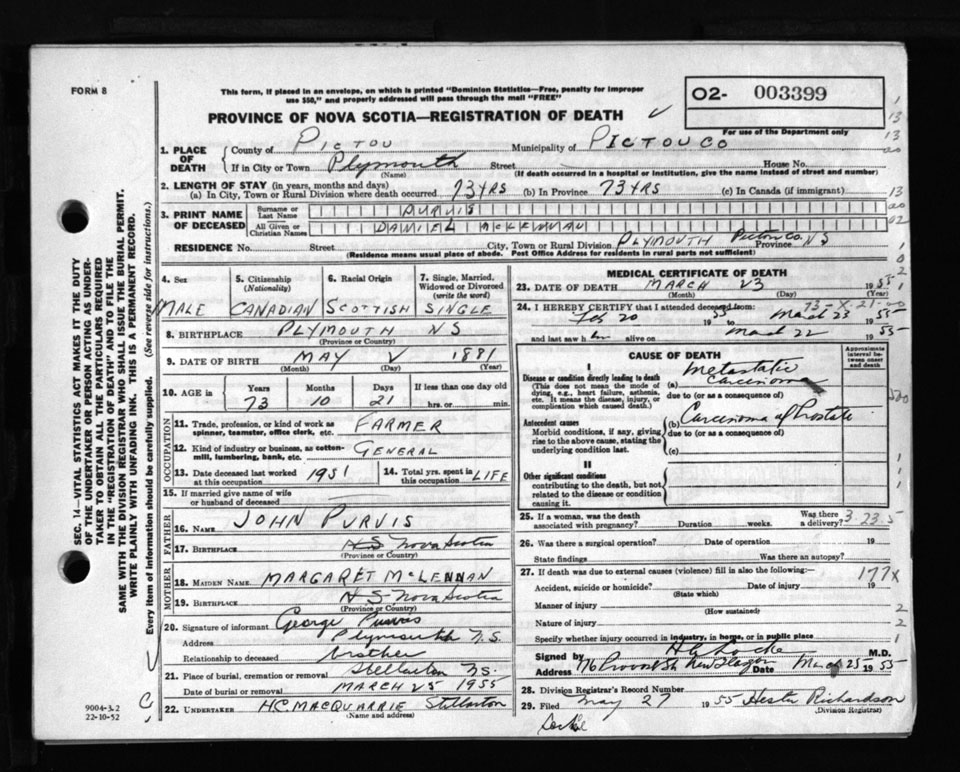 FORM 8
This form, if placed in an envelope, on which is printed "Dominion Statistics—Free, penalty for improper
use $50," and properly addressed will pass through the mail "FREE"
O2- 003399
For use of the Department only
PROVINCE OF NOVA SCOTIA—REGISTRATION OF DEATH
1. PLACE OF DEATH
County of PICTOU Municipality of PICTOU CO
If in City or Town Plymouth Street House No.
(Name) (If death occurred in a hospital or institution, give the name instead of street and number)
2. LENGTH OF STAY (in years, months and days)
(a) In City, Town or Rural Division where death occurred 73 YRS (b) In Province 73 YRS (c) In Canada (if immigrant)
3. PRINT NAME OF DECEASED
Surname or Last Name PURVIS
All Given or Christian Names DANIEL McLENNAN
RESIDENCE No. Street City, Town or Rural Division PLYMOUTH Pictou Co. Province NS
(Residence means usual place of abode. Post Office Address for residents in rural parts not sufficient)
4. Sex
MALE
5. Citizenship
(Nationality)
CANADIAN
6. Racial Origin
SCOTTISH
7. Single, Married,
Widowed or Divorced
(write the word)
SINGLE
8. BIRTHPLACE PLYMOUTH NS
(Province or Country)
9. DATE OF BIRTH MAY 2 1881
(Month) (Day) (Year)
10. AGE in
Years Months Days If less than one day old
73 10 21 hrs. or min.
OCCUPATION
11. Trade, profession, or kind of work as
spinner, teamster, office clerk, etc. FARMER
12. Kind of industry or business, as cotton-
mill, lumbering, bank, etc. GENERAL
13. Date deceased last worked
at this occupation 1951
14. Total yrs. spent in
this occupation LIFE
15. If married give name of wife
or husband of deceased
FATHER
16. NAME JOHN PURVIS
17. BIRTHPLACE NS Nova Scotia
(Province or Country)
MOTHER
18. MAIDEN NAME MARGARET McLENNAN
19. BIRTHPLACE NS Nova Scotia
(Province or Country)
20. Signature of informant George Purvis
Address Plymouth N.S.
Relationship to deceased brother
21. Place of burial, cremation or removal Stellarton NS.
Date of burial or removal MARCH 25 1955
22. UNDERTAKER H.C. MACQUARRIE Stellarton
(Name and address)
MEDICAL CERTIFICATE OF DEATH
23. DATE OF DEATH MARCH 23 1955
(Month) (Day) (Year)
73-X-21-00
24. I HEREBY CERTIFY that I attended deceased from:
Feb 20 1955 March 23 1955
and last saw him alive on March 22 1955
CAUSE OF DEATH
Approximate
interval between
onset
and death
I
Disease or condition directly leading to death
(This does not mean the mode of
dying, e.g., heart failure, asthenia,
etc. It means the disease, injury, or
complication which caused death.)
(a) Metastatic Carcinoma
due to (or as a consequence of)
Antecedent causes
Morbid conditions, if any, giving
rise to the above cause, stating the
underlying condition last.
(b) Carcinoma of Prostate
due to (or as a consequence of)
(c)
II
Other significant conditions
contributing to the death, but not
related to the disease or condition
causing it.
25. If a woman, was the death
associated with pregnancy? Duration weeks. Was there a delivery?
3-23-5
26. Was there a surgical operation? Date of operation 19
State findings Was there an autopsy?
27. If death was due to external causes (violence) fill in also the following:—
177X
Accident, suicide or homicide? Date of injury 19
(State which)
Manner of injury
(How sustained)
Nature of injury
Specify whether injury occurred in industry, in home, or in public place
Signed by H G Locke M.D.
Address 176 Provost St New Glasgow Date March 25 1955
28. Division Registrar's Record Number
29. Filed May 27 1955 Hester Richardson
(Division Registrar)
Locke
SEC. 14—VITAL STATISTICS ACT MAKES IT THE DUTY
OF THE UNDERTAKER OR PERSON ACTING AS UNDER-
TAKER TO OBTAIN ALL THE PARTICULARS REQUIRED
IN THE "REGISTRATION OF DEATH" AND TO FILE THE
SAME WITH THE DIVISION REGISTRAR WHO SHALL ISSUE THE BURIAL PERMIT.
WRITE PLAINLY WITH UNFADING INK. THIS IS A PERMANENT RECORD.
Every item of information should be carefully supplied. (See reverse side for instructions.)
9004-3.2
22-10-52